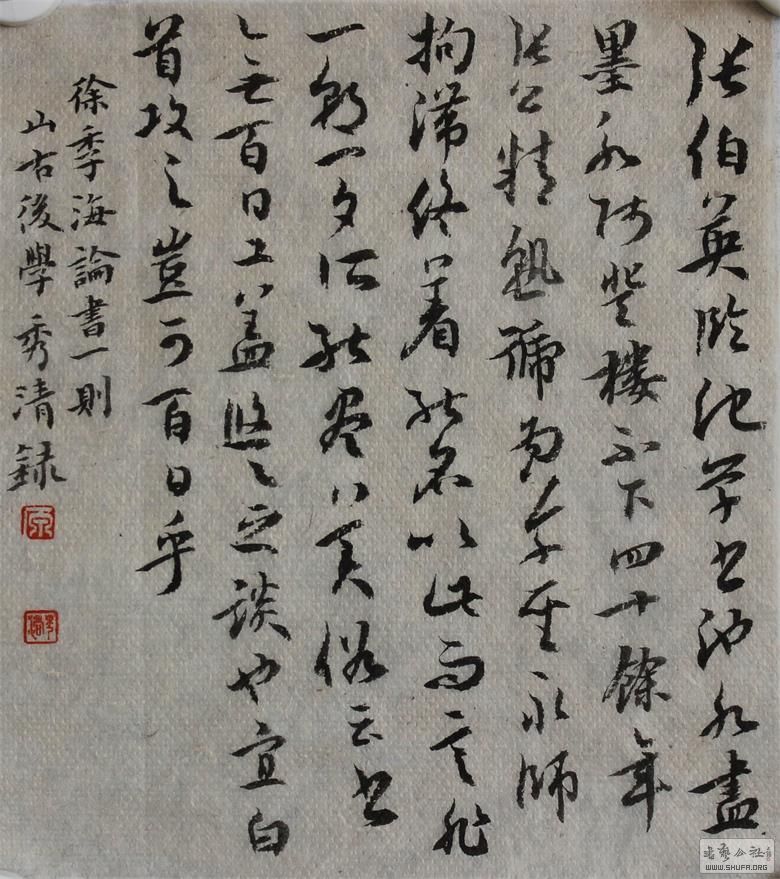 張伯英臨池學書池水盡
墨永師登樓不下四十餘年
張公精熟號為草聖永師
拘滯終著能名以此而言非
一朝一夕所能盡美俗云書
〻無百日工蓋悠〻之談也宜白
首攻之豈可百日乎
徐季海論書一則
山右後學秀清録
书艺公社
WWW.SHUFA.ORG